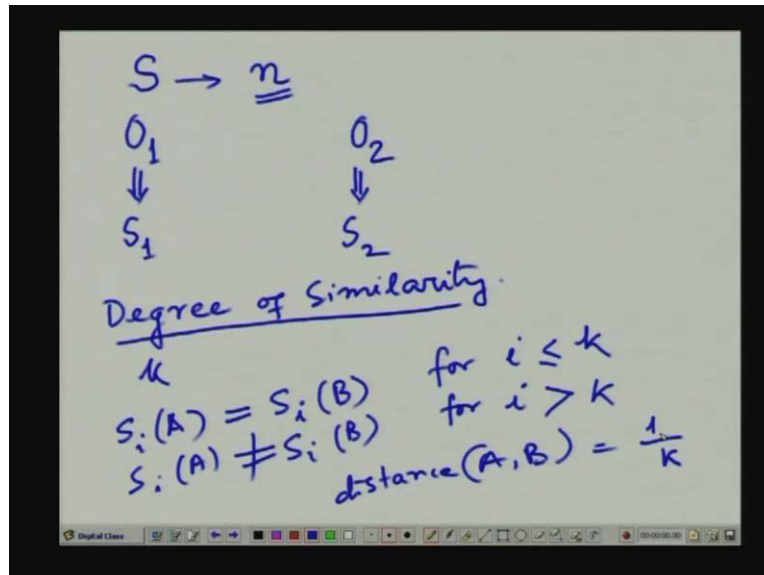 S → n
O₁ O₂
⇓ ⇓
S₁ S₂
Degree of Similarity.
k
Sᵢ(A) = Sᵢ(B) for i ≤ k
Sᵢ(A) ≠ Sᵢ(B) for i > k
distance(A, B) = 1/k
Digital Class 00:00:00.00